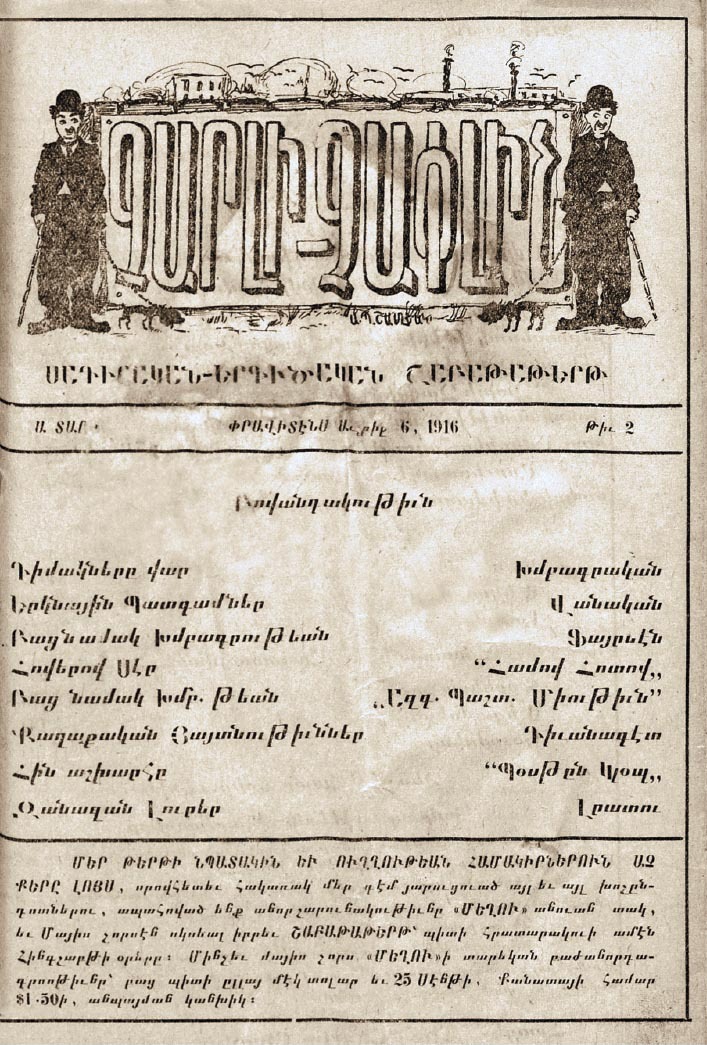 ՉԱՐԼԻ-ՉԱՓԼԻՆ
ՍԱԴԻՐԱԿԱՆ-ԵՐԳԻԾԱԿԱՆ ՇԱԲԱԹԱԹԵՐԹ
Ա. ՏԱՐ․ ՓՐԱՎԻՏԷՆՍ Ապրիլ 6, 1916 Թիւ 2
Բովանդակութիւն
Դիմակները վար Խմբագրական
Երկնային Պատգամներ Վանական
Բաց նամակ Խմբագրութեան Ֆայրմէն
Հովերով Սէր “Համով Հոտով„
Բաց նամակ Խմբ. թեան „Ազգ. Պաշտ. Միութիւն”
Քաղաքական Յայտնութիւններ Դիւանագէտ
Հին աշխարհը “Պօսթըն Կլօպ„
Զանազան Լուրեր Լրատու
ՄԵՐ ԹԵՐԹԻ ՆՊԱՏԱԿԻՆ ԵՒ ՈՒՂՂՈՒԹԵԱՆ ՀԱՄԱԿԻՐՆԵՐՈՒՆ ԱՉ
ՔԵՐԸ ԼՈՅՍ, որովհետեւ հակառակ մեր դէմ յարուցուած այլ եւ այլ խոչըն-
դոտներու, ապահոված ենք անոր շարունակութիւնը «ՄԵՂՈՒ» անուան տակ,
եւ Մայիս չորսէն սկսեալ իբրեւ ՇԱԲԱԹԱԹԵՐԹ՝ պիտի հրատարակուի ամէն
Հինգշաբթի օրերը։ Մինչեւ մայիս չորս «ՄԵՂՈՒ»ի տարեկան բաժանորդա-
գրութիւնը՝ բաց պիտի ըլլայ մէկ տոլար եւ 25 Սէնթի, Քանատայի համար
$1.50ի, անպայման կանխիկ։